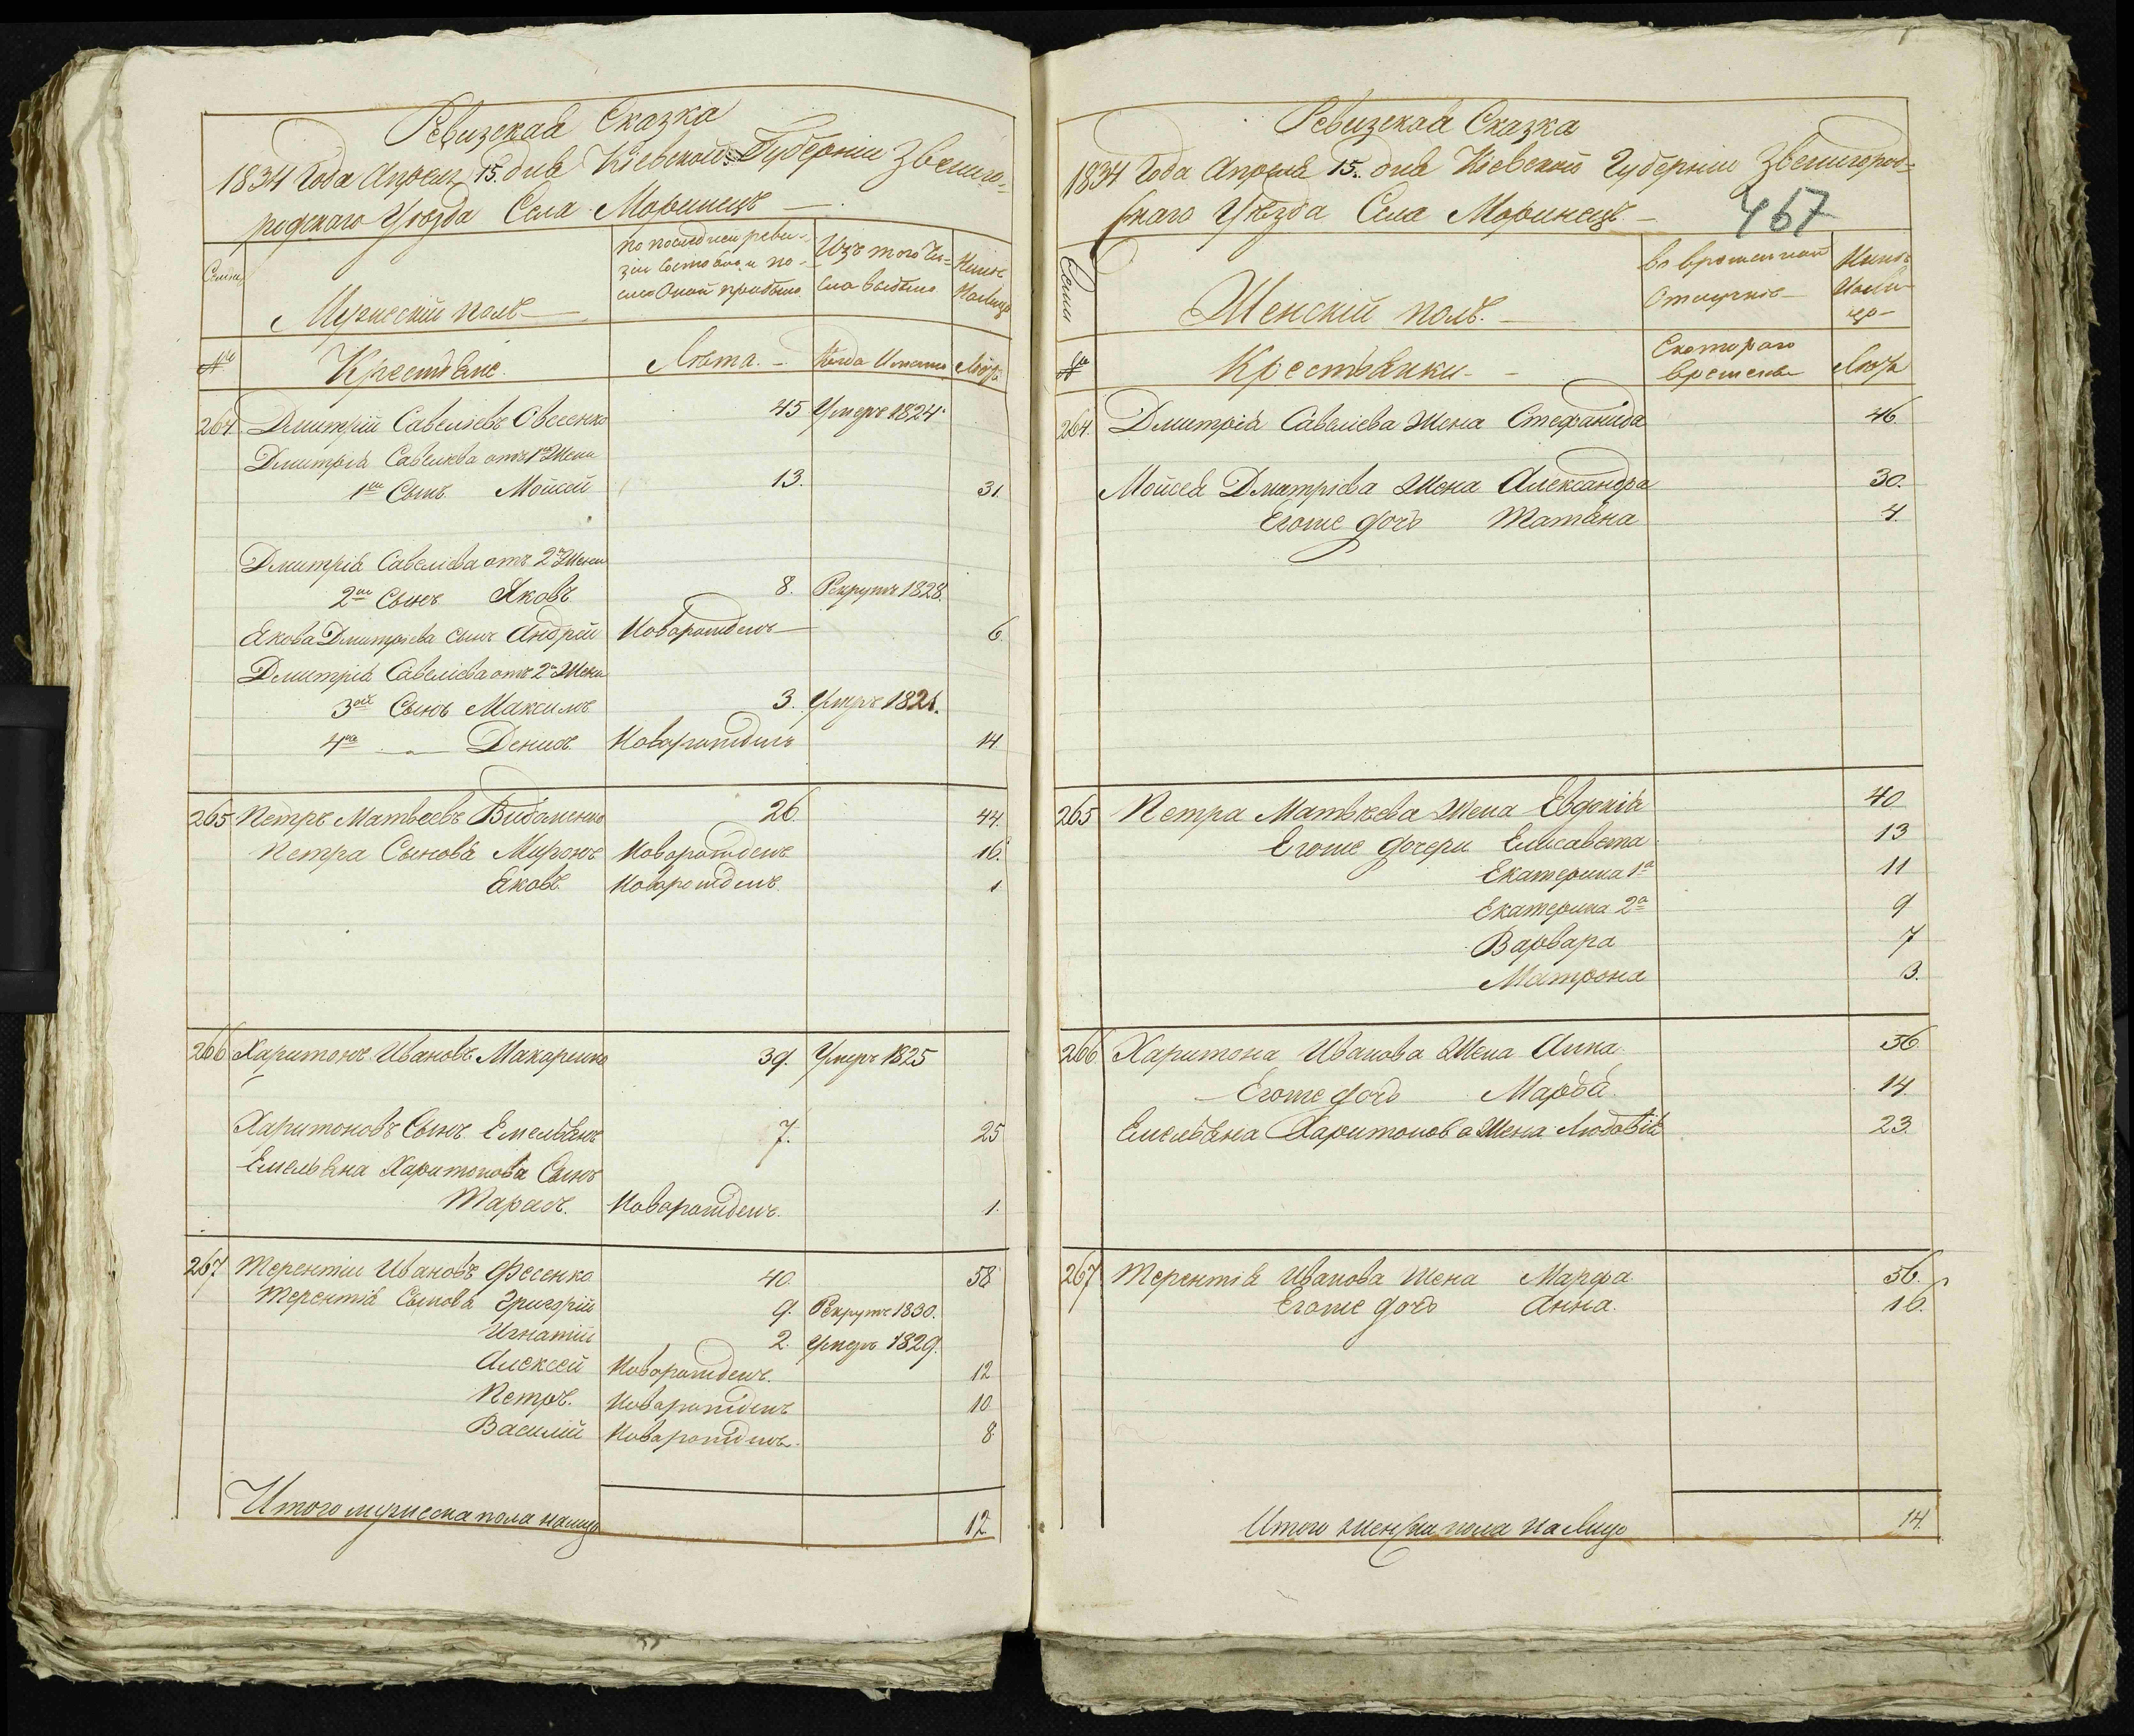 Ревизская Сказка
1834 Года Апреля 15. дня Кіевской Губерніи Звениго=
родскаго Уѣзда Села Моринецъ —
Семьи
Мужескій полъ —
по последней реви-
зіи состояло и по-
сле оной прибыло
Изъ того чи=
сла выбыло
Ныне
Налицо
№
Крестьяне.
Лѣта. —
Когда Именно
Лѣта
264. Дмитрій Савеліевъ Овсеенко 45 Умеръ 1824.
Дмитрія Савеліева отъ 1й Жены
1й Сынъ Мойсей 13. 31.
Дмитрія Савеліева отъ 2й Жены
2й Сынъ Яковъ 8. Рекрутъ 1828.
Якова Дмитріева сынъ Андрей Новорожденъ — 6.
Дмитрія Савеліева отъ 2й Жены
3й Сынъ Максимъ 3. Умеръ 1821.
4й — Денисъ Новорожденъ 14
265 Петръ Матвеевъ 26. 44.
Петра Сыновья Миронъ Новорожденъ 16.
Яковъ Новорожденъ 1
266 Харитонъ Ивановъ Макаренко 39. Умеръ 1825
Харитоновъ Сынъ Емельянъ 7. 25
Емельяна Харитонова Сынъ
Тарасъ. Новорожденъ. 1.
267 Терентій Ивановъ Фесенко 40. 58
Терентія Сыновья Григорій 9. Рекрутъ 1830.
Игнатій 2. Умеръ 1829.
Алексей Новорожденъ. 12
Петръ. Новорожденъ 10
Василій Новорожденъ. 8
Итого мужеска пола налицо 12
Ревизская Сказка
1834 Года Апреля 15. дня Кіевской Губерніи Звенигород=
скаго Уѣзда Села Моринецъ —
467
Семьи
Женскій полъ. —
Во временной
Отлучкѣ —
Ныне
Нали-
цо —
№
Крестьянки — —
Съкотораго
времени
Лѣта
264. Дмитрія Савеліева Жена Стефанида 46.
Мойсея Дмитріева Жена Александра 30.
Егоже дочь Татьяна 4.
265 Петра Матвѣева Жена Евдокія 40
Егоже дочери Елисавета 13
Екатерина 1я 11
Екатерина 2я 9
Варвара 7
Матрона 3.
266 Харитона Иванова Жена Анна. 56
Егоже дочь Марфа. 14.
Емельяна Харитонова Жена 23.
267 Терентія Иванова Жена Марфа 56.
Егоже дочь Анна. 16.
Итого женска пола налицо 14.